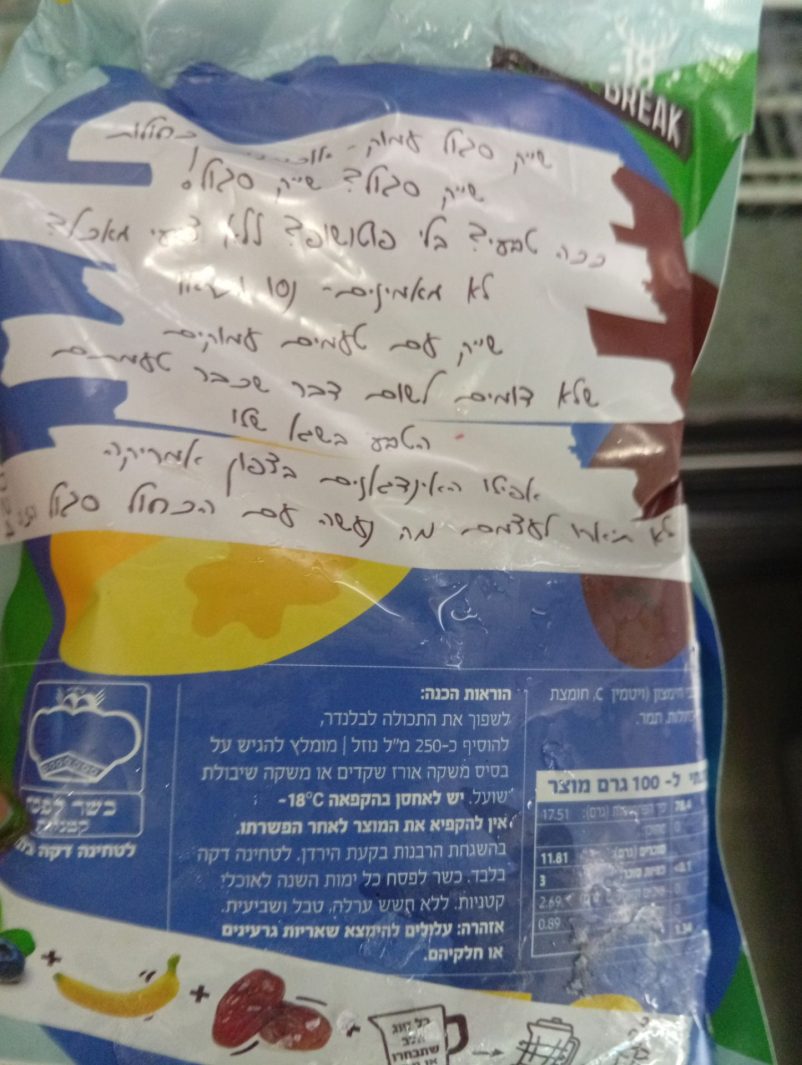 -18°
BREAK
שייק סגול עמוק - אוכמניות כחולות
שייק סגול? שייק סגול!
ככה טבעי? בלי פוטושופ? ללא צבעי מאכל?
לא מאמינים - נסו
שייק עם טעמים עמוקים
שלא דומים לשום דבר שכבר טעמתם
הטבע בשגא שלו
אפילו האינדיאנים בצפון אמריקה
לא תיארו לעצמם מה נעשה עם הכחול סגול הזה
הוראות הכנה:
לשפוך את התכולה לבלנדר,
להוסיף כ-250 מ"ל נוזל | מומלץ להגיש על
בסיס משקה אורז שקדים או משקה שיבולת
שועל. יש לאחסן בהקפאה 18°C-
אין להקפיא את המוצר לאחר הפשרתו.
בהשגחת הרבנות בקעת הירדן. לטחינה דקה
בלבד. כשר לפסח כל ימות השנה לאוכלי
קטניות. ללא חשש ערלה, טבל ושביעית.
אזהרה: עלולים להימצא שאריות גרעינים
או חלקיהם.
חימצון (ויטמין C, חומצת
תמר.
ל- 100 גרם מוצר
17.51
סוכרים (גרם): 11.81
כפיות סוכר 3
2.69
0.89
1.34
כשר לפסח
קטניות
לטחינה דקה
+
+
+
כל נוזל
שתבחרו